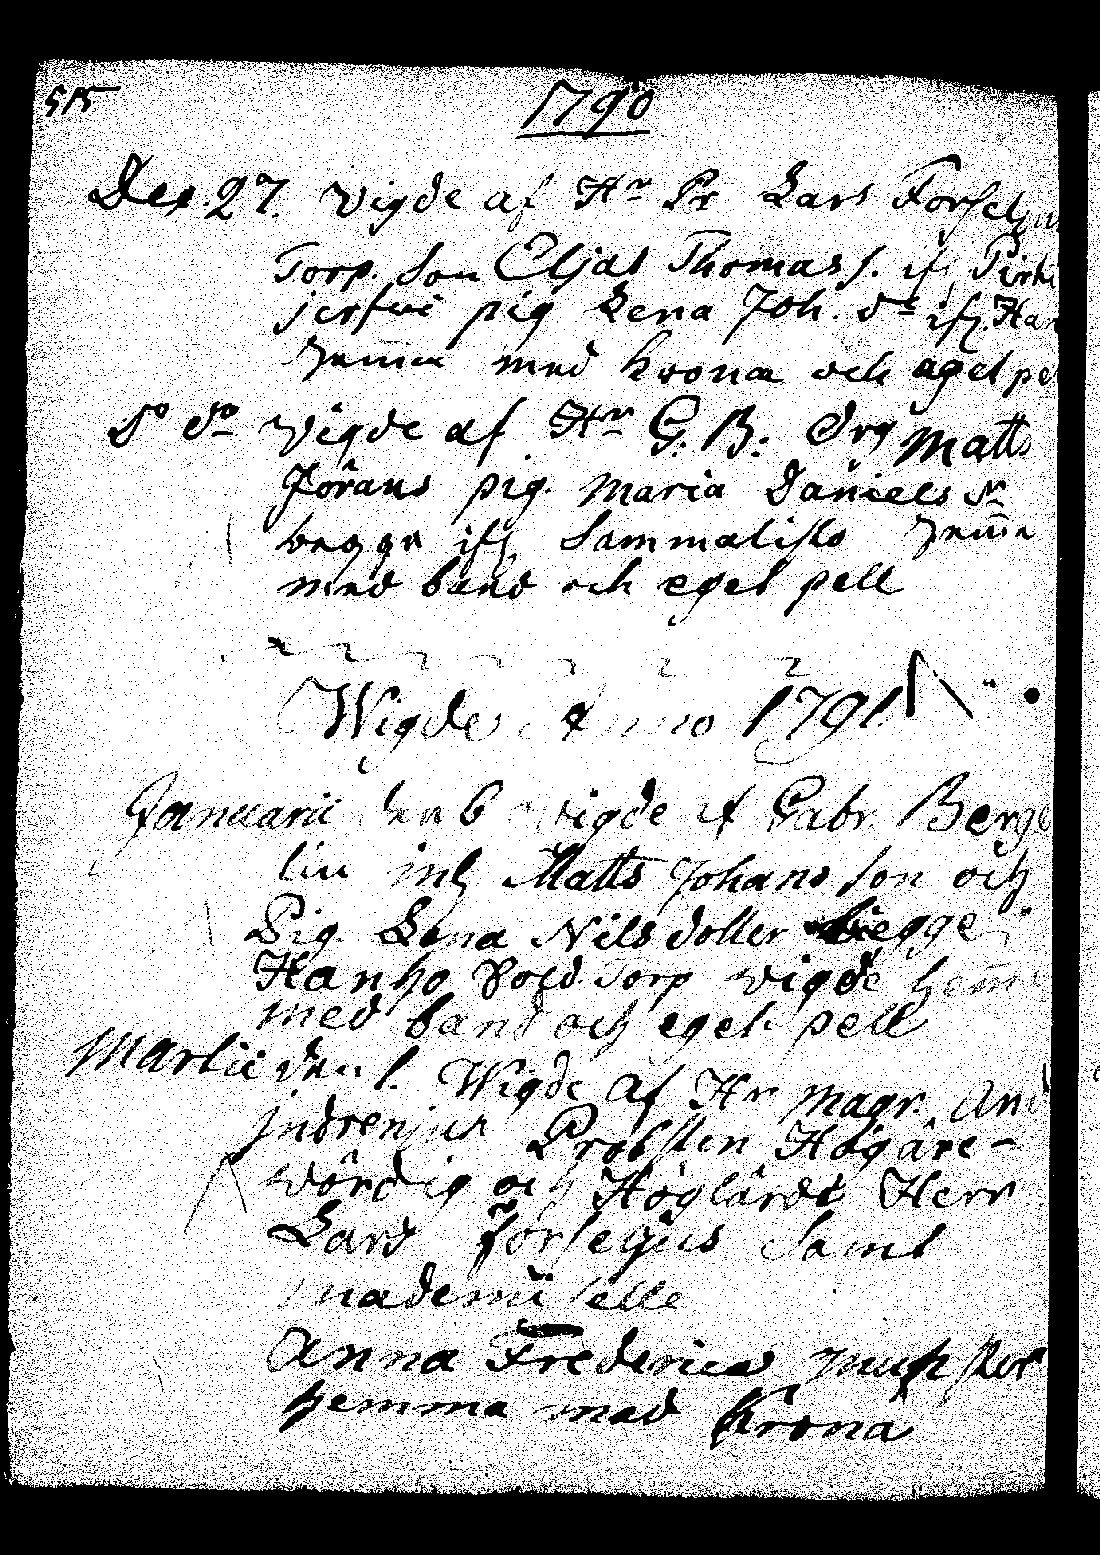 515
1790
Des. 27. vigde af Hr Pr Lars Forseliu
Torp. Son Eljas Thomas s. ifr Pirti
jerfwi pig Lena Joh. dr ifr. Han
hemma med krona och eget pe
do do vigde af Hr G. B. Drg Matts
Jörans pig. Maria Daniels dr
begge ifr Sammalisto hemma
med band och eget pell
Wigde Anno 1791
Januarii den 6 vigde af Gabr. Berge
lin inh Matts Johans son och
Pig Lena Nils dotter begge
Hanho Torp vigde hem
med band och eget pell
Martii den 1. Wigde af Hr Magr. And
Indrenius Probsten Högäre-
wördig och Höglärde Herr
Lars Forselius Samt
mademoiselle
Anna Frederica
hemma med Krona